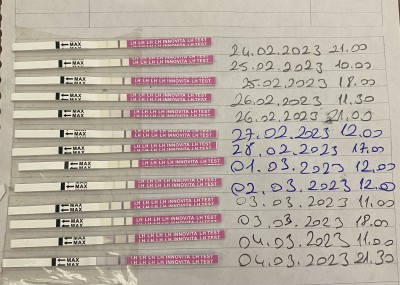 MAX LH LH LH LH INNOVITA LH TEST 24.02.2023 21.00
MAX LH LH LH LH INNOVITA LH TEST 25.02.2023 10.00
MAX LH LH LH LH INNOVITA LH TEST 25.02.2023 18.00
MAX LH LH LH LH INNOVITA LH TEST 26.02.2023 11.30
MAX LH LH LH LH INNOVITA LH TEST 26.02.2023 21.00
MAX LH LH LH LH INNOVITA LH TEST 27.02.2023 12.00
MAX LH LH LH LH INNOVITA LH TEST 28.02.2023 17.00
MAX LH LH LH LH INNOVITA LH TEST 01.03.2023 12.00
MAX LH LH LH LH INNOVITA LH TEST 02.03.2023 12.00
MAX LH LH LH LH INNOVITA LH TEST 03.03.2023 11.00
MAX LH LH LH LH INNOVITA LH TEST 03.03.2023 18.00
MAX LH LH LH LH INNOVITA LH TEST 04.03.2023 11.00
MAX LH LH LH LH INNOVITA LH TEST 04.03.2023 21.30